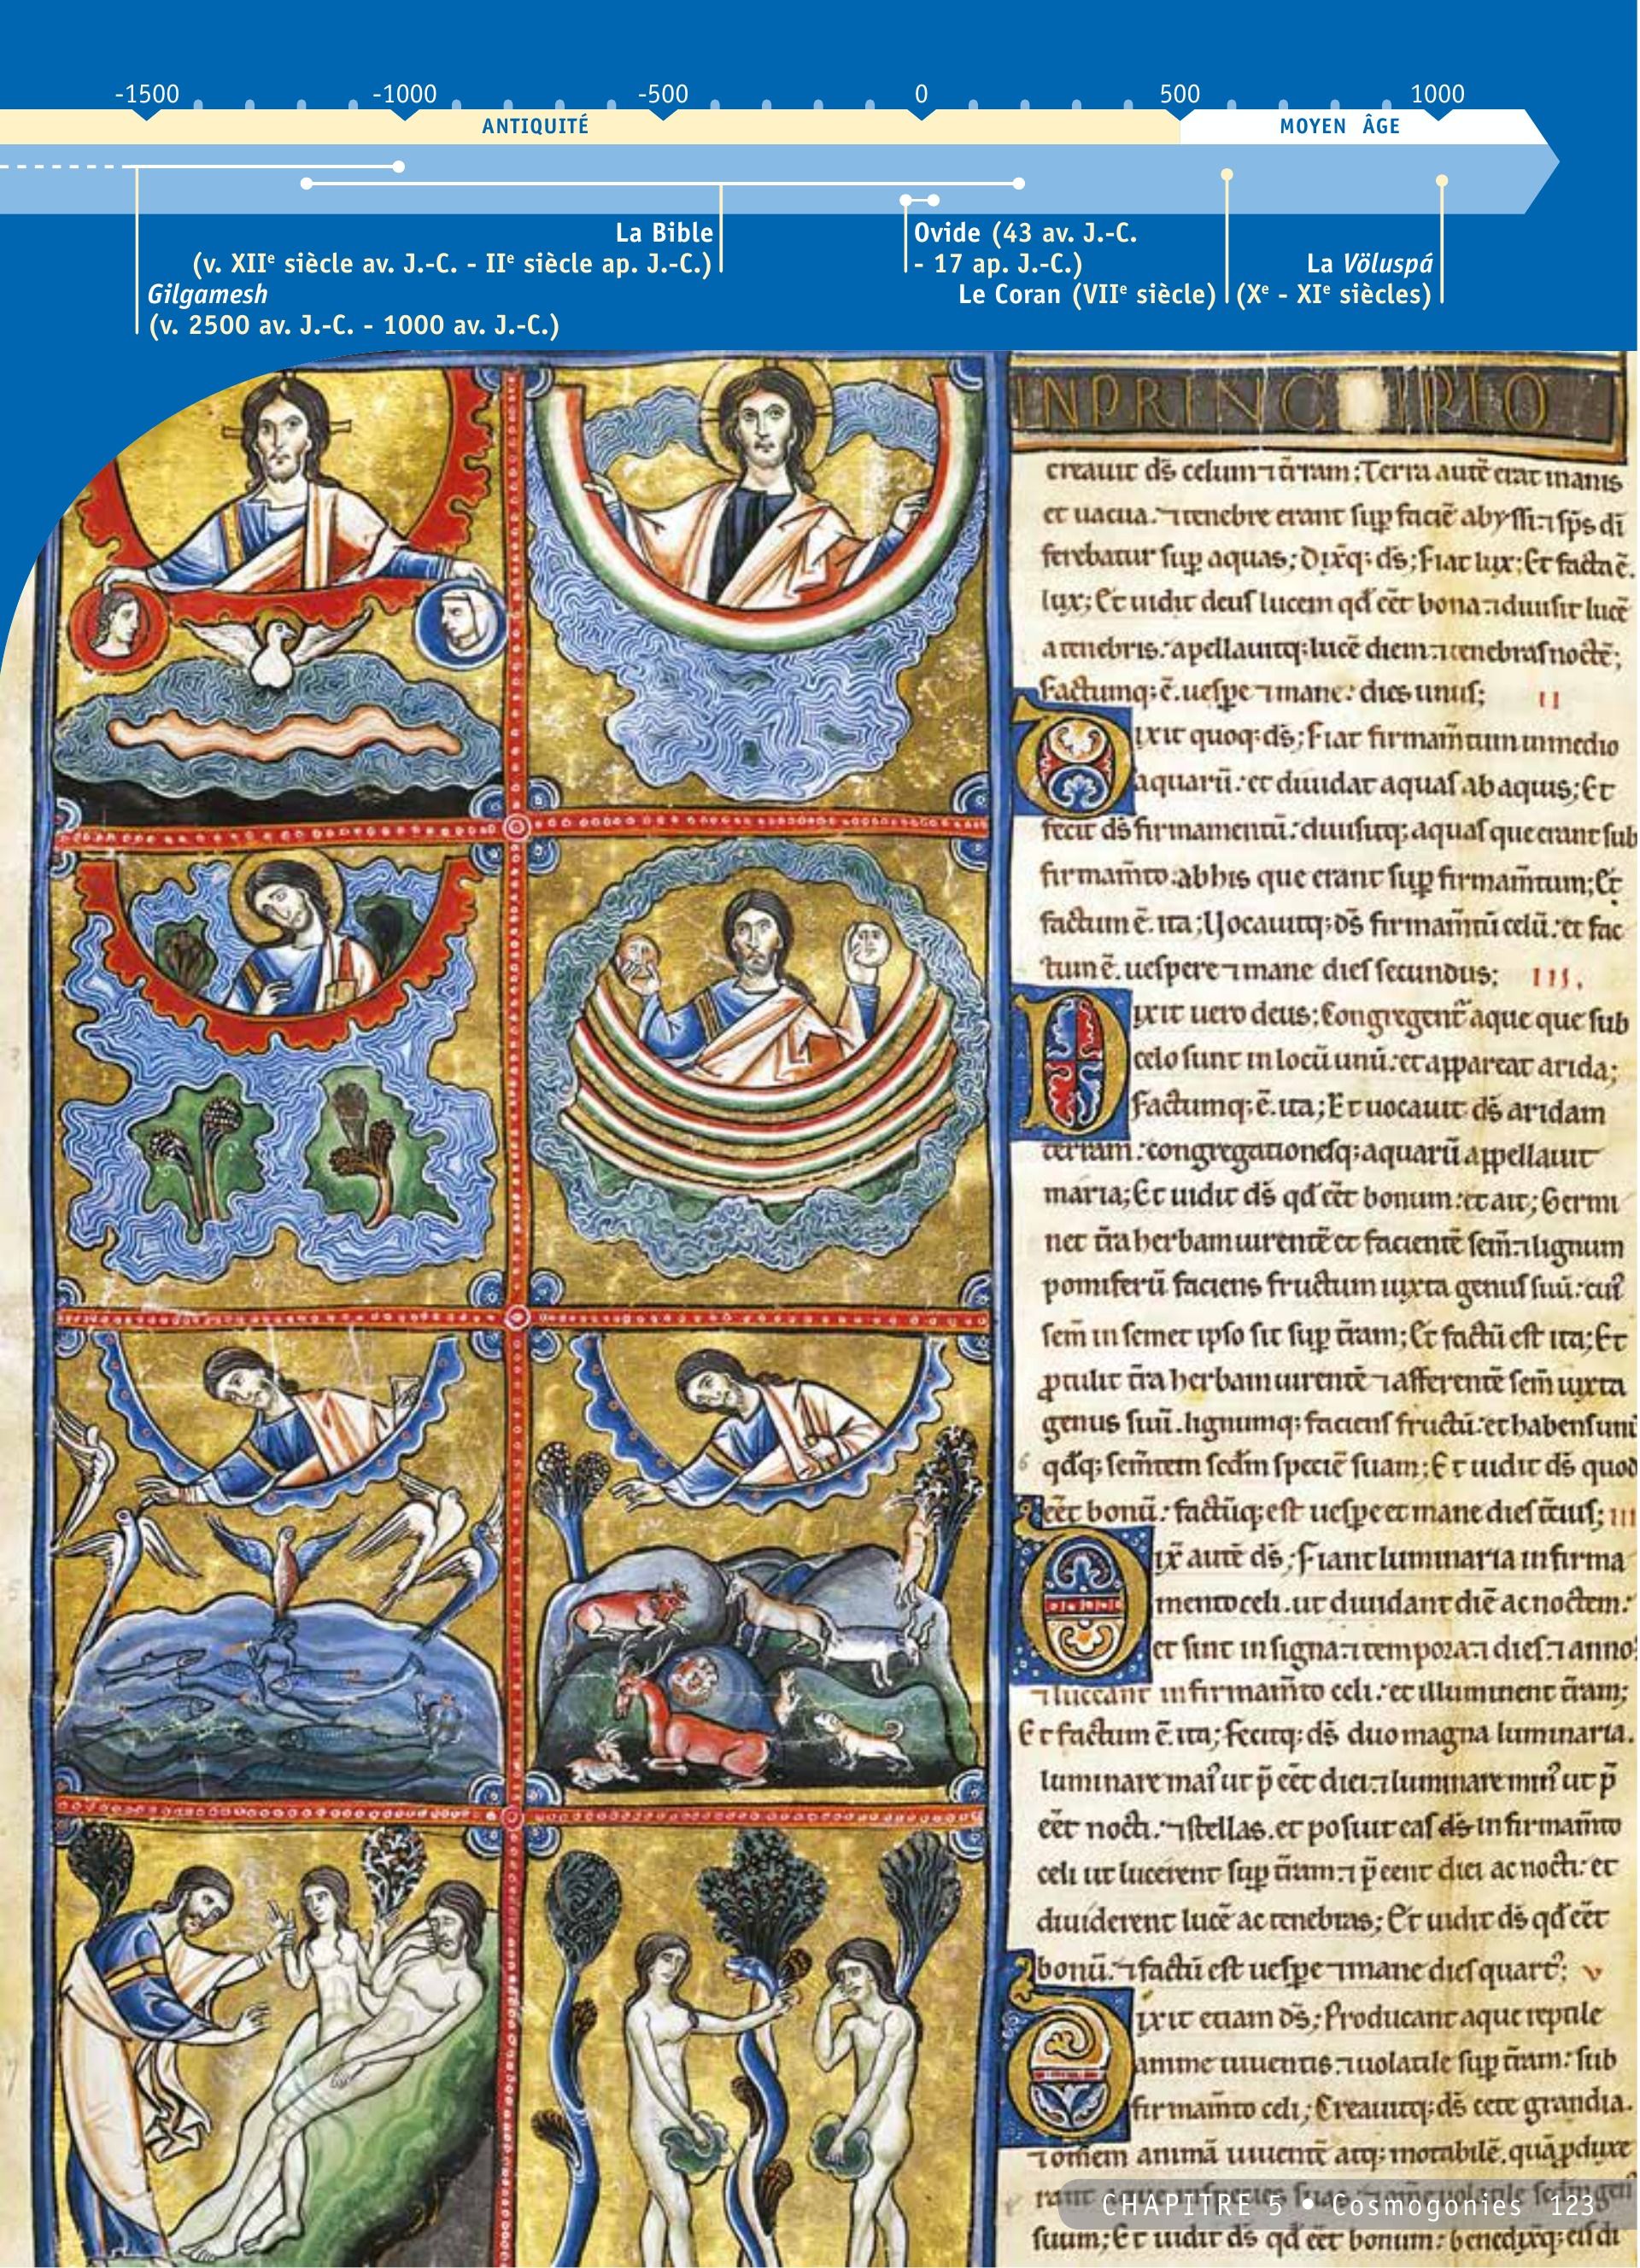 -1500 -1000 -500 0 500 1000
ANTIQUITÉ MOYEN ÂGE
La Bible
(v. XIIe siècle av. J.-C. - IIe siècle ap. J.-C.)
Gilgamesh
(v. 2500 av. J.-C. - 1000 av. J.-C.)
Ovide (43 av. J.-C.
- 17 ap. J.-C.)
Le Coran (VIIe siècle)
La Völuspá
(Xe - XIe siècles)
INPRINC IPIO
creauit ds̄ celum ⁊ t̄ram; Terra autē erat inanis
et uacua. ⁊ tenebre erant sup faciē abyssi ⁊ sp̄s dī
ferebatur sup aquas; Dixq; ds̄; Fiat lux; Et facta ē.
lux; Et uidit deus lucem qd' eēt bona ⁊ diuisit lucē
a tenebris. apellauitq; lucē diem ⁊ tenebras noctē;
factumq; ē. uespe ⁊ mane. dies unus; II
Dixit quoq; ds̄; Fiat firmam̄tum in medio
aquarū. et diuidat aquas ab aquis; Et
fecit ds̄ firmamentū. diuisitq; aquas que erant sub
firmam̄to. ab his que erant sup firmam̄tum; Et
factum ē. ita; Uocauitq; ds̄ firmam̄tū celū. et fac
tum ē. uespere ⁊ mane dies secundus; III.
Dixit uero deus; Congregent̄ aque que sub
celo sunt in locū unū. et appareat arida;
Factumq; ē. ita; Et uocauit ds̄ aridam
terram. congregationesq; aquarū appellauit
maria; Et uidit ds̄ qd' eēt bonum. et ait; Germi
net t̄ra herbam uirentē et facientē sem̄ ⁊ lignum
pomiferū faciens fructum iuxta genus suū. cui'
sem̄ in semet ipso sit sup t̄ram; Et factū est ita; Et
ptulit t̄ra herbam uirentē ⁊ afferentē sem̄ iuxta
genus suū. lignumq; faciens fructū. et habens unū
qdq; sem̄tem scdm speciē suam; Et uidit ds̄ quod
eēt bonū. factūq; est uespe et mane dies t̄cius; III
Dix autē ds̄; Fiant luminaria in firma
mento celi. ut diuidant diē ac noctem.
et sint in signa ⁊ tempora ⁊ dies ⁊ annos
⁊ luceant in firmam̄to celi. et illuminent t̄ram;
Et factum ē. ita; Fecitq; ds̄ duo magna luminaria.
luminare mai' ut p̄ eēt diei ⁊ luminare min' ut p̄
eēt nocti. ⁊ stellas. et posuit eas ds̄ in firmam̄to
celi ut lucerent sup t̄ram ⁊ p̄eent diei ac nocti. et
diuiderent lucē ac tenebras; Et uidit ds̄ qd' eēt
bonū. ⁊ factū est uespe ⁊ mane dies quart'; v
Dixit etiam ds̄; Producant aque reptile
anime uiuentis ⁊ uolatile sup t̄ram. sub
firmam̄to celi; Creauitq; ds̄ cete grandia.
⁊ omem animā uiuentē atq; motabilē. quā pduxe
CHAPITRE 5 • Cosmogonies 123
suum; Et uidit ds̄ qd' eēt bonum. benedixq; eis di